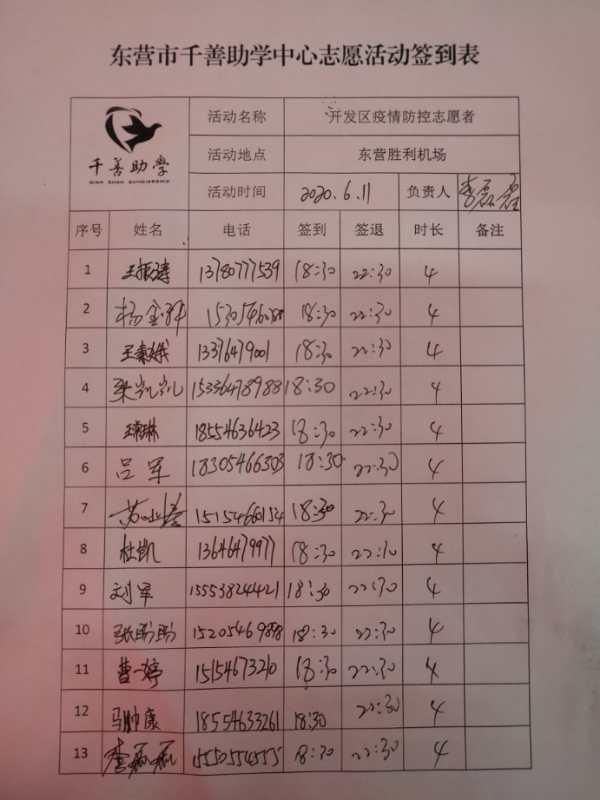 东营市千善助学中心志愿活动签到表
千善助学
活动名称 开发区疫情防控志愿者
活动地点 东营胜利机场
活动时间 2020.6.11 负责人 李磊磊
序号 姓名 电话 签到 签退 时长 备注
1 13780777539 18:30 22:30 4
2 18:30 22:30 4
3 13376479001 18:30 22:30 4
4 梁凯凯 15336478988 18:30 22:30 4
5 18554636423 18:30 22:30 4
6 吕军 18305466303 18:30 22:30 4
7 15154660154 18:30 22:30 4
8 杜凯 13646479977 18:30 22:30 4
9 刘军 15553824421 18:30 22:30 4
10 张盼盼 18:30 22:30 4
11 曹婷 15154673210 18:30 22:30 4
12 马帅康 18554633261 18:30 22:30 4
13 李磊磊 15505545555 18:30 22:30 4